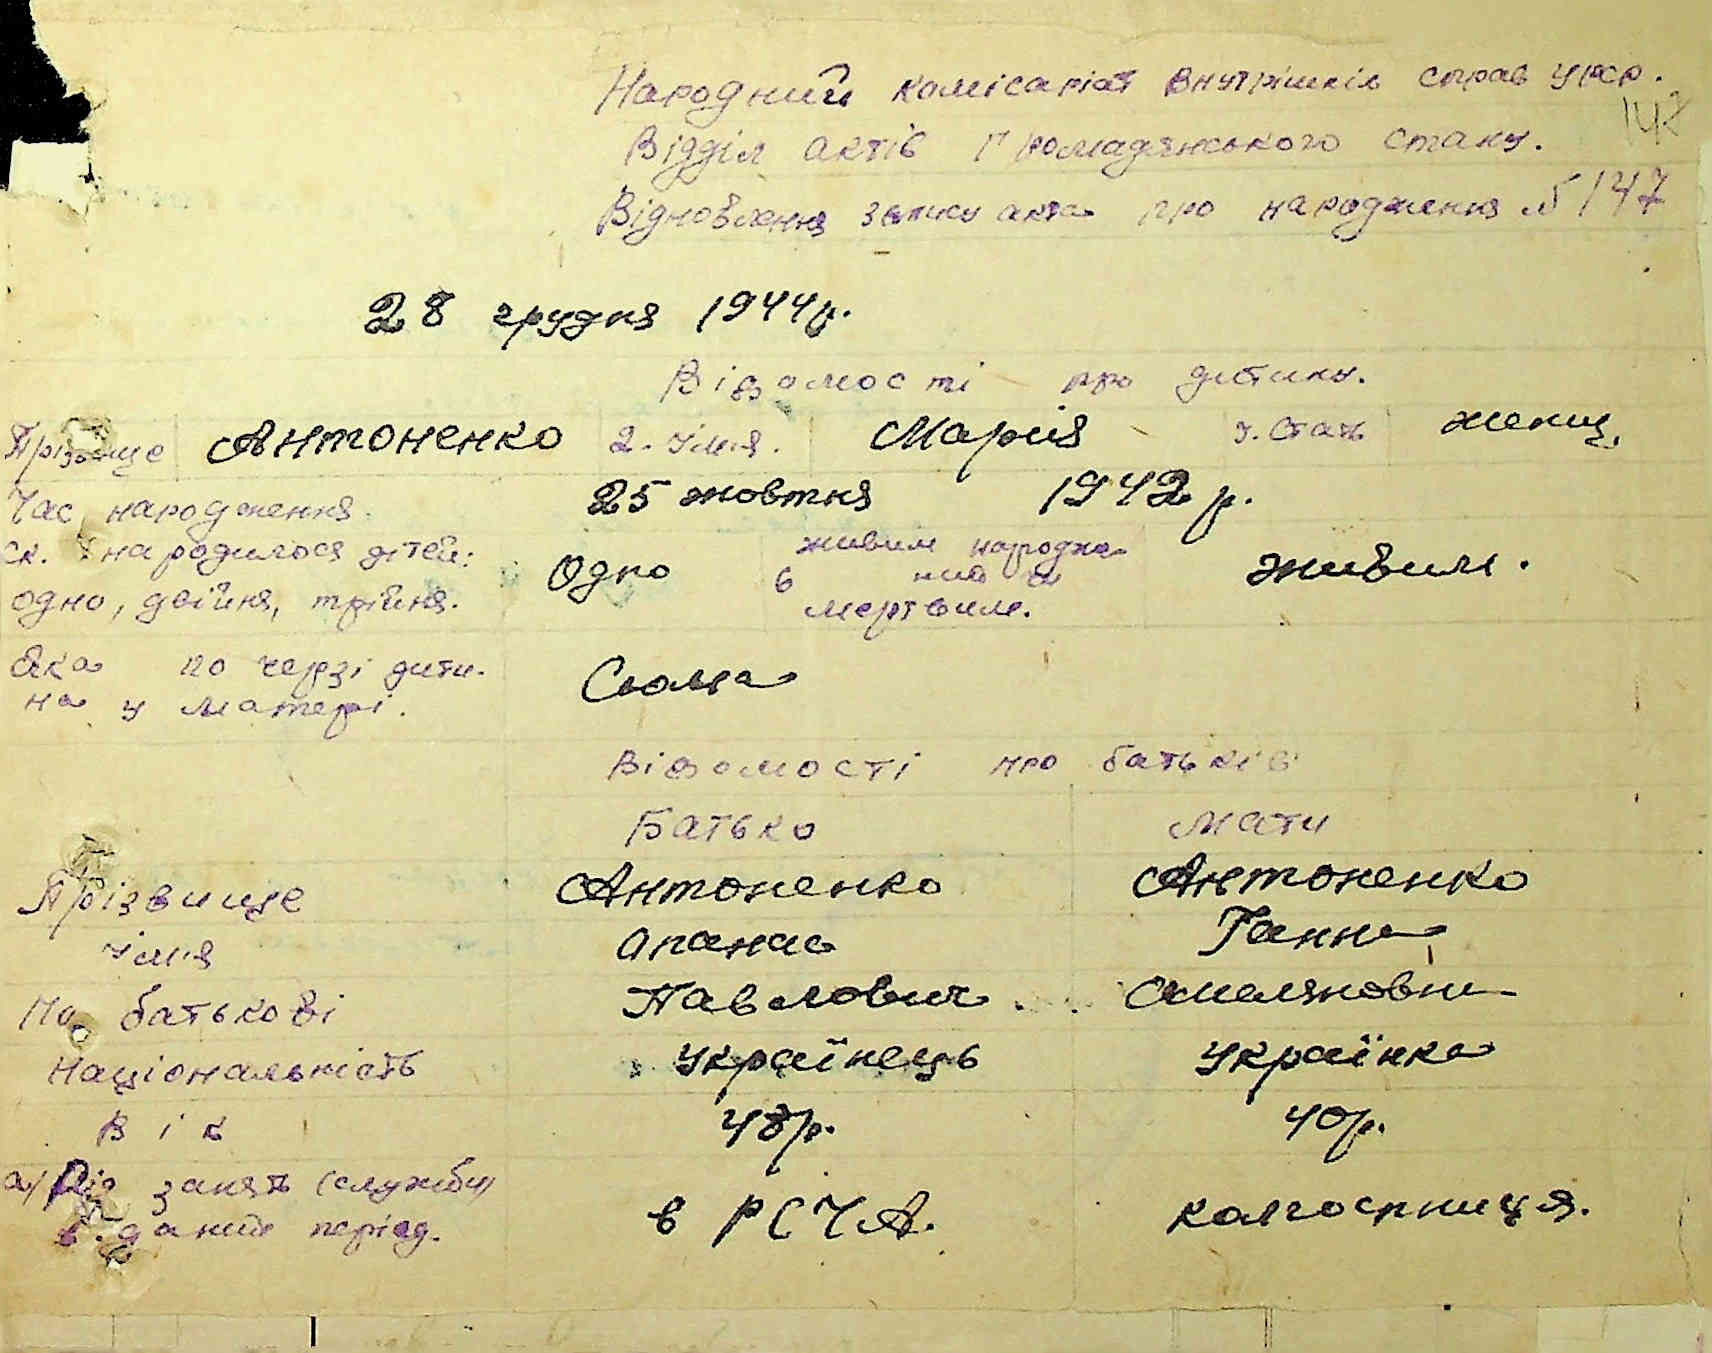 Народний комісаріат внутрішніх справ УРСР.
147
Відділ актів громадянського стану.
Відновлення запису акта про народження № 147
28 грудня 1944 р.
Відомості про дитину.
Прізвище Антоненко 2. Ім'я. Марія 3. Стать женщ.
Час народження. 25 жовтня 1942 р.
ск. народилося дітей: Одно живим народже-
одно, двійня, трійня. ний чи живим.
мертвим.
Яка по черзі дити- Сьома
на у матері.
Відомості про батьків
Батько Мати
Прізвище Антоненко Антоненко
Ім'я Опанас Ганна
По батькові Павлович Омеляновна
Національність Українець Українка
Вік 48 р. 40 р.
а/ Рід занять (служби)
в даний період. в РСЧА. колгоспниця.